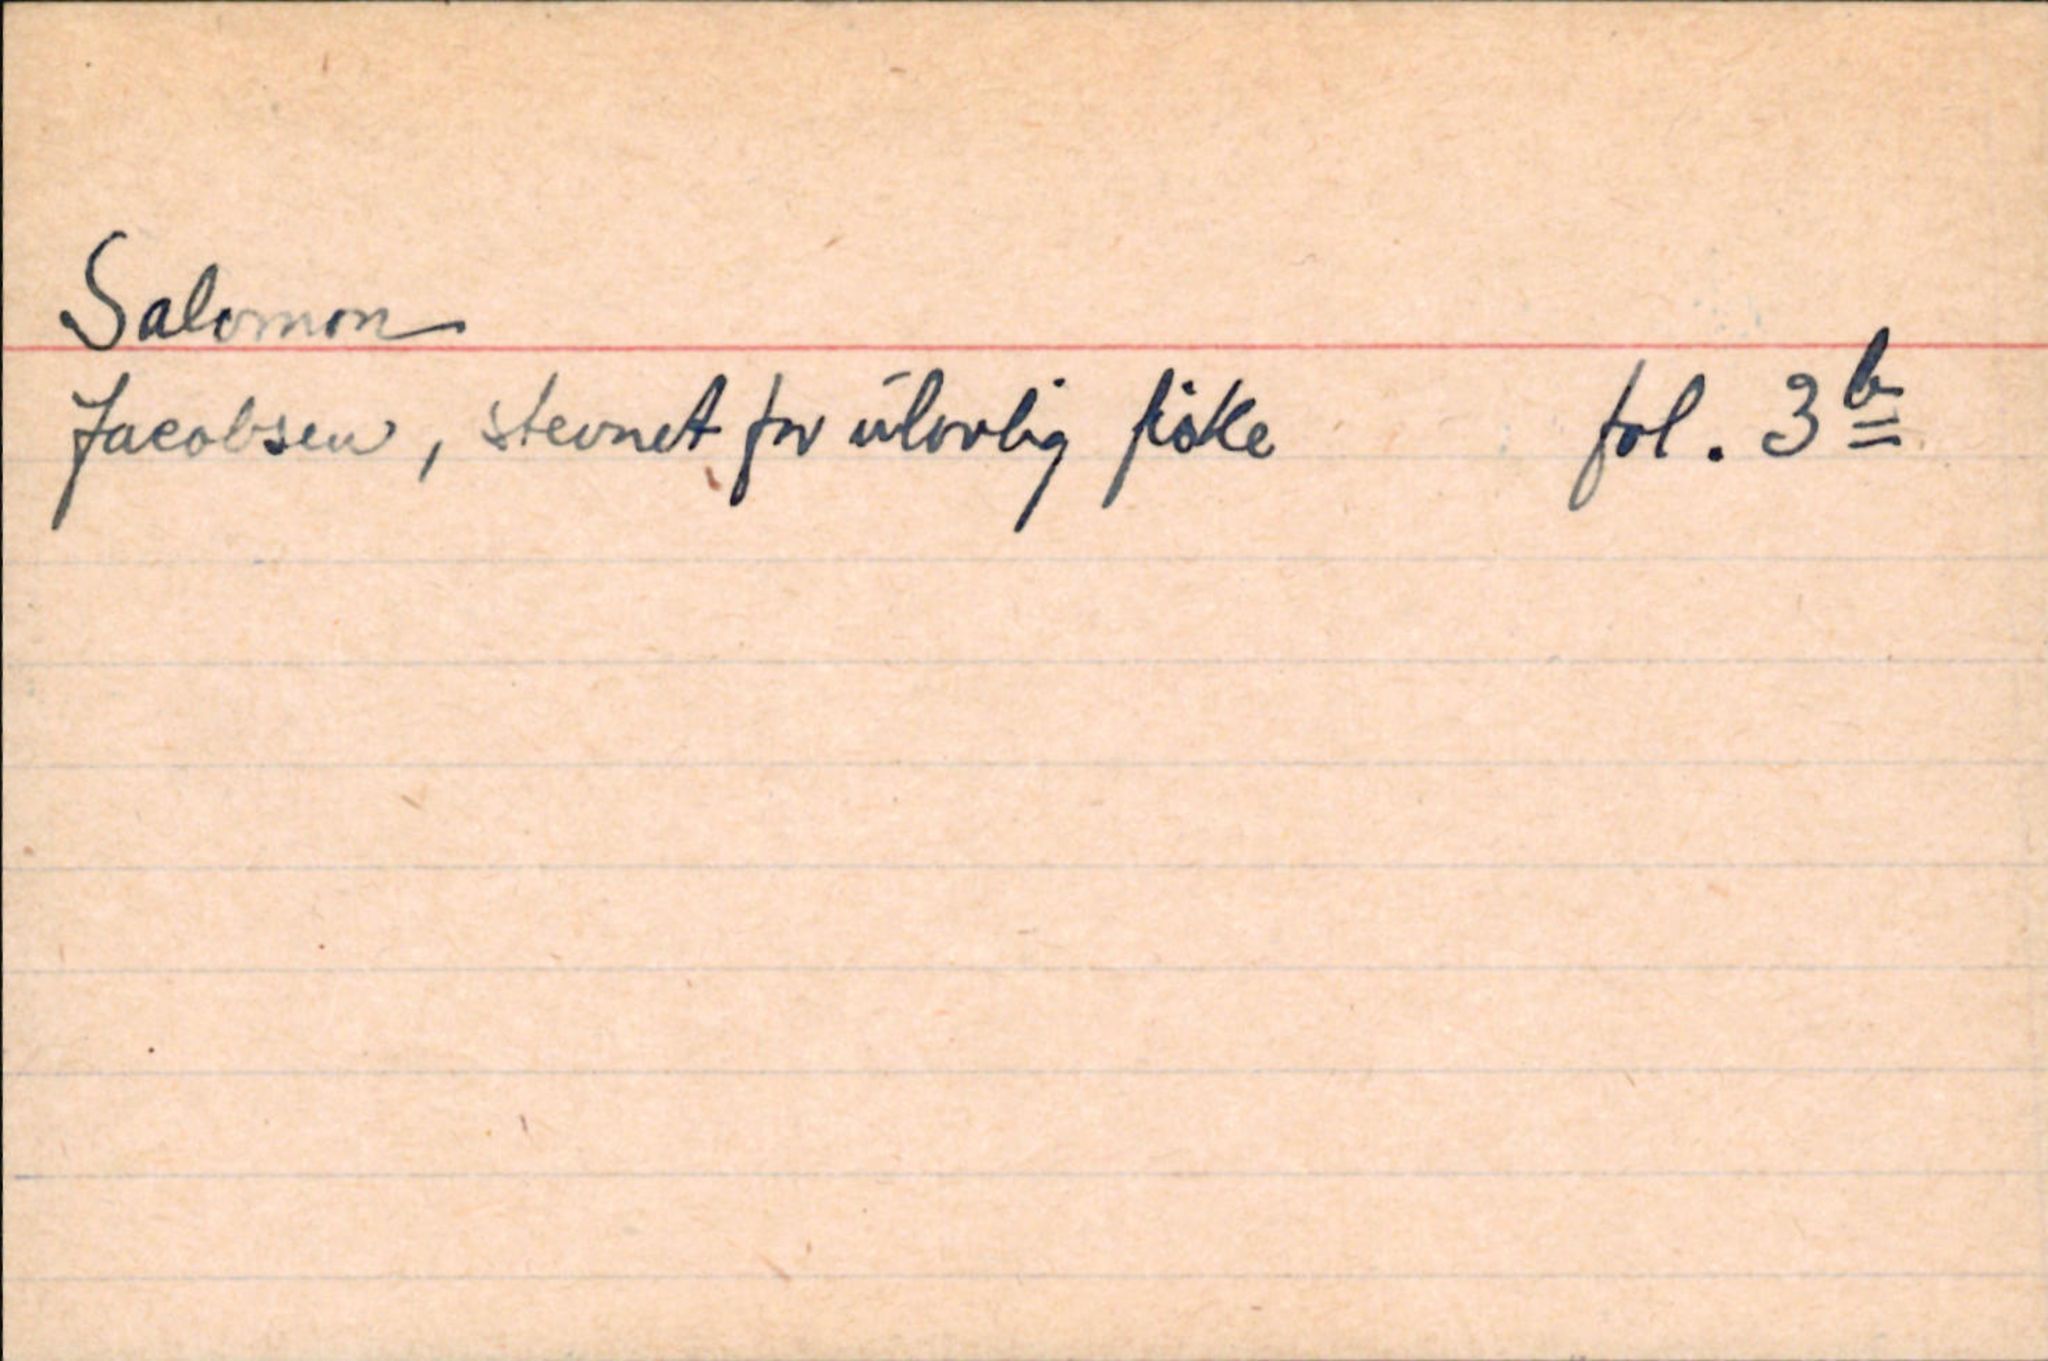 Salomon
Jacobsen, stevnet for ulovlig fiske fol. 3b